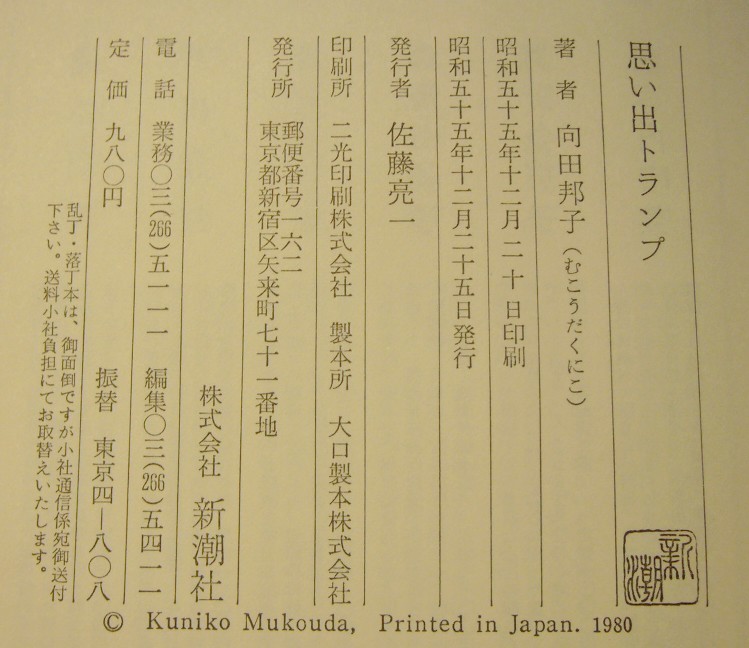 思い出トランプ
新潮
著者 向田邦子(むこうだくにこ)
昭和五十五年十二月二十日印刷
昭和五十五年十二月二十五日発行
発行者 佐藤亮一
印刷所 二光印刷株式会社 製本所 大口製本株式会社
発行所 郵便番号一六二
東京都新宿区矢来町七十一番地
株式会社 新潮社
電話 業務〇三(266)五一一一 編集〇三(266)五四一一
定価 九八〇円 振替 東京四―八〇八
乱丁・落丁本は、御面倒ですが小社通信係宛御送付
下さい。送料小社負担にてお取替えいたします。
© Kuniko Mukouda, Printed in Japan. 1980